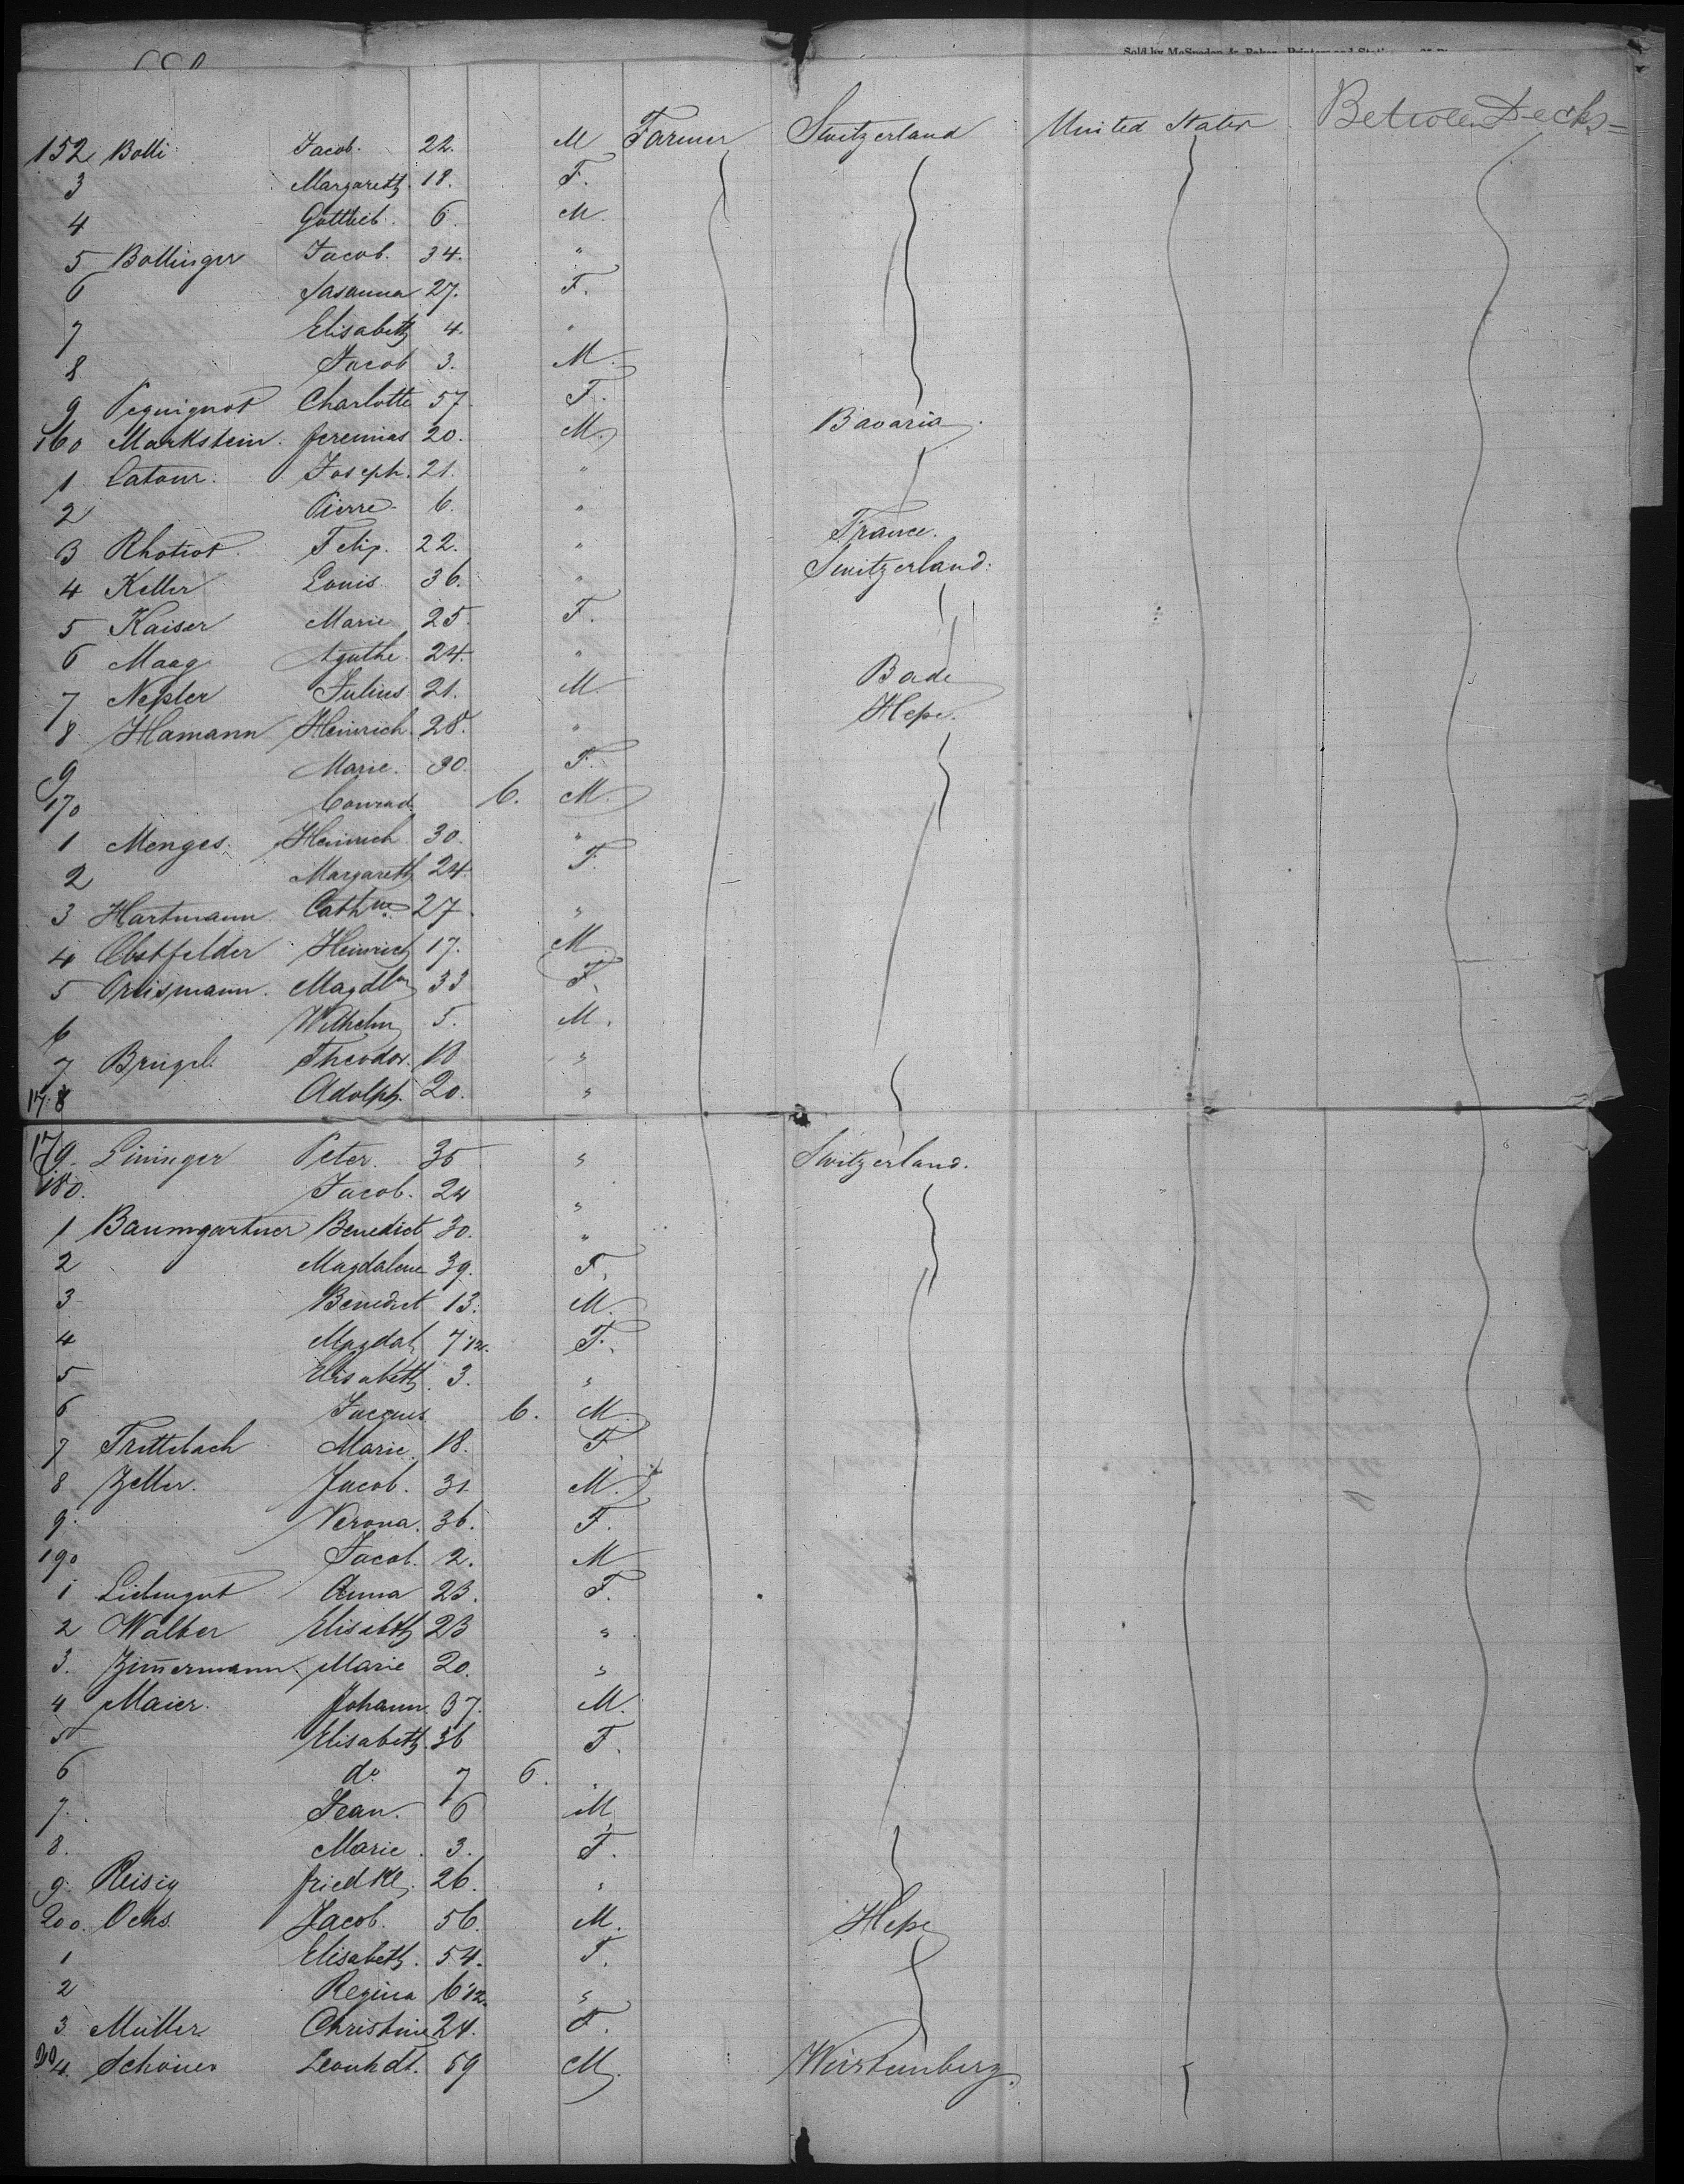 152 Bolli Jacob. 22. M Farmer Switzerland United States Between Decks=
3 Margareth. 18. F.
4 Gottlieb. 6. M.
5 Bollinger Jacob. 34. "
6 Susanna 27. F.
7 Elisabeth 4. "
8 Jacob 3. M.
9 Pequignot Charlotte 57. F.
160 Markstein. Jeremias 20. M. Bavaria.
1 Latour. Joseph. 21. "
2 Pierre 6. "
3 Felip. 22. " France.
4 Keller Louis 36. " Switzerland.
5 Kaiser Marie 25. F.
6 Maag Agathe 24. "
7 Julius 21. M. Bade
8 Hamann Heinrich. 28. " Heße.
9 Marie. 30. F.
170 Conrad. 6. M.
1 Menges. Heinrich 30. "
2 Margareth 24. F.
3 Hartmann. Cathne 27. "
4 Obstfelder Heinrich 17. M.
5 Magdl 33 F.
6 Wilhelm 5. M.
7 Theodor. 18 "
178 Adolph. 20. "
179. Lininger Peter. 35 " Switzerland.
180. Jacob. 24 "
1 Baumgartner Benedict 30. "
2 Magdalene 39. F.
3 Benedict 13. M.
4 Magdal 7 1/2. F.
5 Elisabeth 3. "
6 Jacques 6. M.
7 Marie 18. F.
8 Zeller. Jacob. 31. M.
9. Verona. 36. F.
190 Jacob. 2. M
1 Anna 23. F.
2 Walker Elisabeth 23 "
3. Zim̄ermann. Marie 20. "
4 Maier. Johann. 37. M.
5 Elisabeth. 36 F.
6 do 7 6. "
7. Jean. 6 M
8. Marie. 3. F.
9. Reisig friedke. 26. "
200. Ochs. Jacob. 56. M. Heße
1 Elisabeth. 54. F.
2 Regina 6 1/2. "
3 Müller Christine 24. F.
204. Leonhdt. 59 M. Würtemberg.